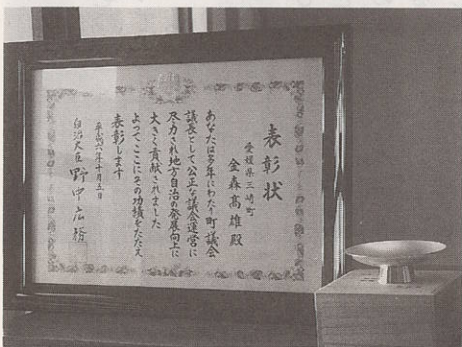 表彰状
愛媛県三崎町
金森髙雄殿
あなたは多年にわたり町議会
議長として公正な議会運営に
尽力され地方自治の発展向上に
大きく貢献されました
よってここにその功績をたたえ
表彰します
平成六年十月五日
自治大臣野中広務